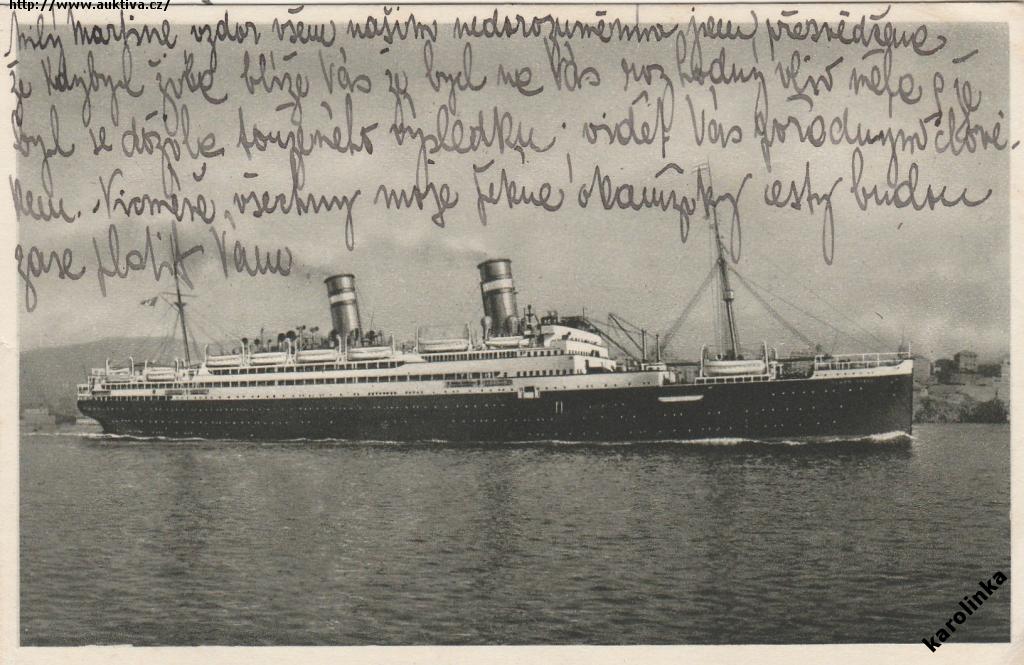 http://www.auktiva.cz/
Milý Martine vzdor všem našim nedorozuměním jsem přesvědčena
že kdybych žila blíže Vás že bych na Vás rozhodný vliv měla a že
bych se dožila touženého výsledku; vidět Vás pořádným člově-
kem. Nicméně, všechny moje pěkné okamžiky cesty budou
zase platit Vám
karolinka